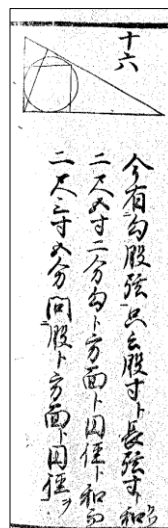 十六
今有勾股弦只云股寸ト長弦寸和
二尺四寸二分勾ト方面ト囗径ト和
二尺三寸四分問股ト方面ト囗径ヲ